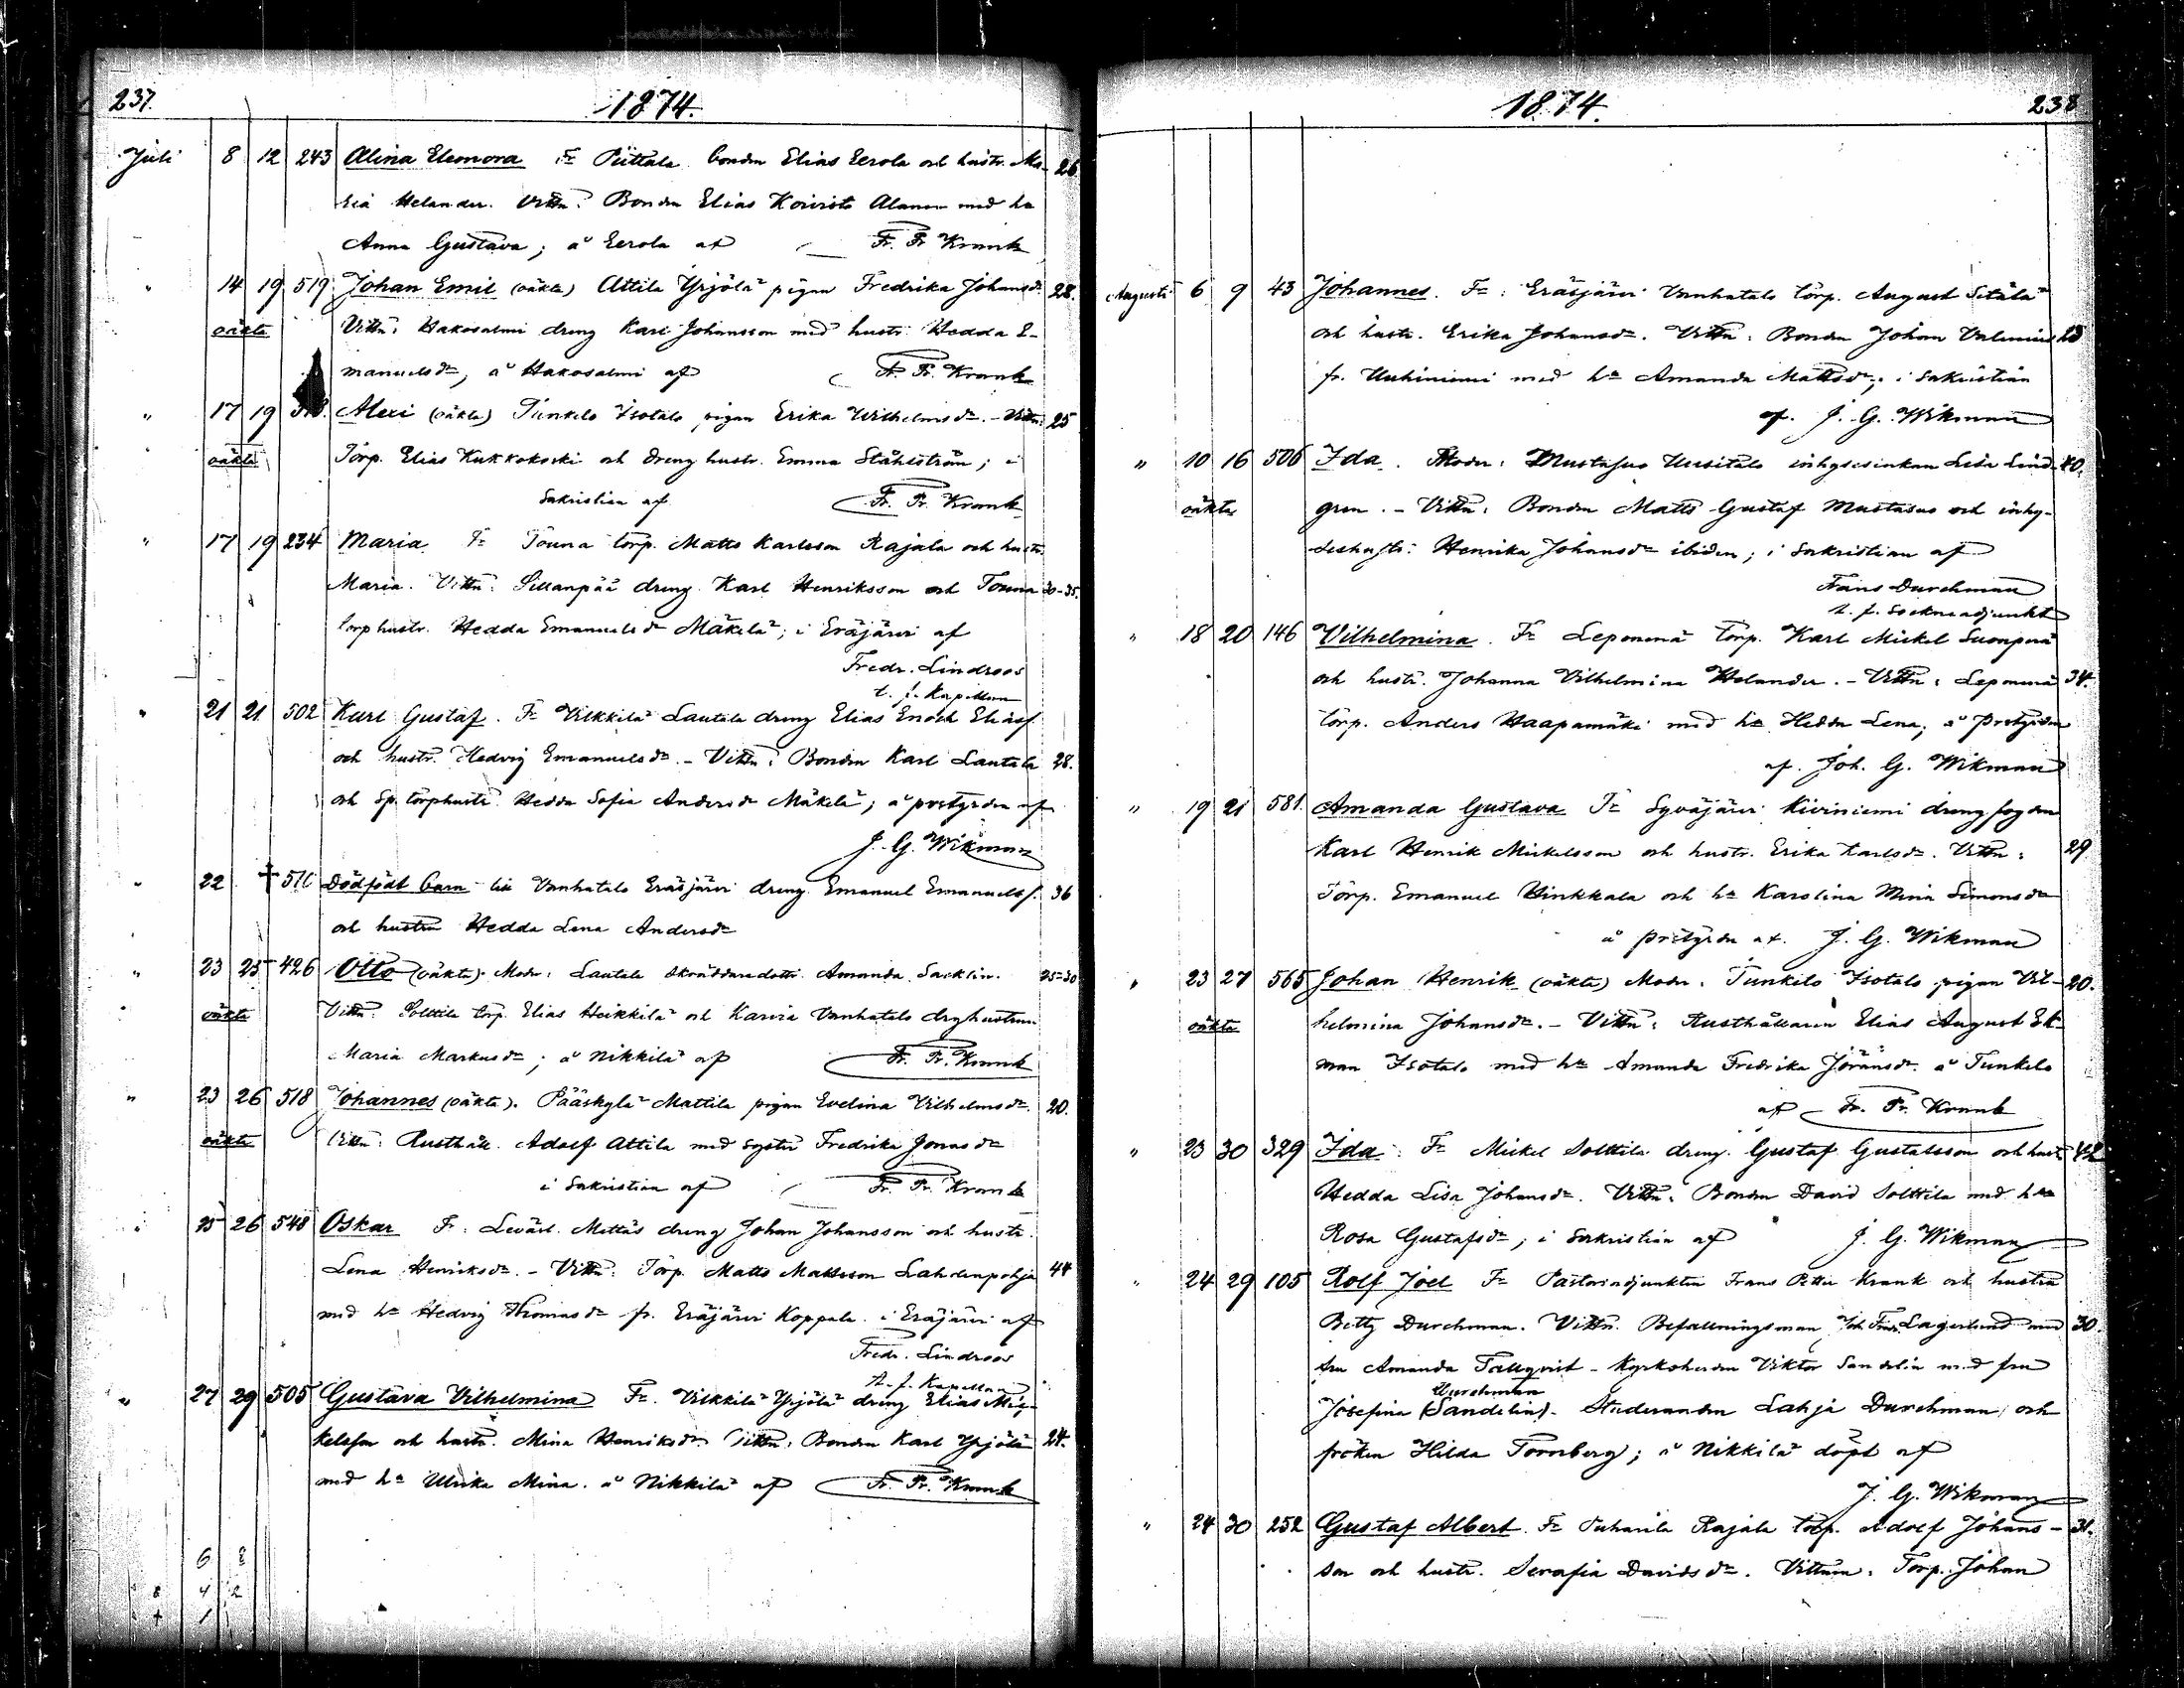 237. 1874.
Juli 8 12 243 Alina Eleonora Fr Pittala bonden Elias Eerola och hustr. Ma- 26
ria Helander. Vittn: Bonden Elias Koivisto Alanen med hu
Anna Gustava; å Eerola af Fr. Fr. Krank
" 14 19 519 Johan Emil (oäkta) Attila Yrjölä pigan Fredrika Johansdr 28.
oäkta Vittn: Hakosalmi dreng Karl Johansson med hustr. Hedda E-
manuelsdr, å Hakosalmi af Fr. Fr. Krank
" 17 19 Alexi (oäkta) Tunkelo Isotalo pigan Erika Wilhelmsdr. - Vittn: 25
oäkta Torp. Elias Kukkokoski och dreng hustr. Emma Ståhlström; i
Sakristian af Fr. Fr. Krank
" 17 19 234 Maria Fr Touna torp. Matts Karlsson Rajala och hustr.
Maria. Vittn: Sillanpää dreng Karl Henriksson och Touna 30-35.
torphustr. Hedda Emanuelsdr Mäkelä; i Eräjärvi af
Fredr. Lindroos
t. f. Kapellan
" 21 21 502 Karl Gustaf. Fr Vilkkilä Lautala dreng Elias Enoch Eliass.
och hustr. Hedvig Emanuelsdr. - Vittn: Bonden Karl Lautala 28.
och Sp. torphustr. Hedda Sofia Andersdr Mäkelä; å prestgården af
J. G. Wikman
" 22 + 576 Dödfödt barn till Vanhatalo Eräjärvi dreng Emanuel Emanuelss. 36
och hustru Hedda Lena Andersdr
" 23 25 426 Otto (oäkta) Moder: Lautala skräddaredottr. Amanda Sacklin. 25-30
oäkta Vittn: Solttila torp. Elias Heikkilä och Karvia Vanhatalo drghustrun
Maria Markusdr; å Nikkilä af Fr. Fr. Krank
" 23 26 518 Johannes (oäkta). Pääskylä Mattila pigan Evelina Vilhelmsdr. 20.
oäkta Vittn: Rusthåll. Adolf Attila med syster Fredrika Jonasdr
i Sakristian af Fr. Fr. Krank
" 25 26 548 Oskar Fr: Levärl. Mettäs dreng Johan Johansson och hustr.
Lena Henriksdr. - Vittn: Torp. Matts Mattsson Lahdenpohja 44
med hu Hedvig Thomasdr fr. Eräjärvi Koppala. i Eräjärvi af
Fredr. Lindroos
t. f. Kapellan
" 27 29 505 Gustava Vilhelmina Fr. Vilkkilä Yrjölä dreng Elias Mic-
kelsson och hustr. Mina Henriksdr. Vittn: Bonden Karl Yrjölä 24.
med hu Ulrika Mina. å Nikkilä af Fr. Fr. Krank
6 8
8 4 2
+ 1
1874. 238
Augusti 6 9 43 Johannes. Fr: Eräjärvi Vanhatalo torp. August Setälä
och hustr. Erika Johansdr. Vittn: Bonden Johan Valenius
fr. Uuhiniemi med hu Amanda Mattsdr; i Sakristian
af. J. G. Wikman
" 10 16 506 Ida. Moder: Mustasuo Uusitalo inhysesinkan Lisa Lind- 40.
oäkta gren. - Vittn: Bonden Matts Gustaf Mustasuo och inhy-
seshustr. Henrika Johansdr ibiden; i Sakristian af
Frans Durchman
t. f. Sockneadjunkt
" 18 20 146 Vilhelmina. Fr Leponemä torp. Karl Mickel Suonpää
och hustr. Johanna Vilhelmina Helander. - Vittn: Leponemä 34.
torp. Anders Haapamäki med hu Hedda Lena; å Prestgården
af. Joh. G. Wikman
" 19 21 581. Amanda Gustava Fr Syväjärvi Kiviniemi drengfogden
Karl Henrik Mickelsson och hustr. Erika Karlsdr. Vittn: 29.
Torp. Emanuel Hinkkala och hu Karolina Mina Simonsdr
å prestgården af. J. G. Wikman
" 23 27 565 Johan Henrik (oäkta) Moder: Tunkelo Isotalo pigan Vil- 20.
oäkta helmina Johansdr. - Vittn: Rusthållaren Elias August Ek-
man Isotalo med hu Amanda Fredrika Göransdr å Tunkelo
af Fr. Fr. Krank
" 23 30 329 Ida: Fr Mickel Solttila dreng Gustaf Gustafsson och hustr. 42
Hedda Lisa Johansdr. Vittn: Bonden David Solttila med hu
Rosa Gustafsdr; i Sakristian af J. G. Wikman
" 24 29 105 Rolf Joel Fr Pastorsadjunkten Frans Petter Krank och hustru
Betty Durchman. Vittn. Befallningsman Joh. Fredr. Lagerlund med 30.
fru Amanda Tallqvist - Kyrkoherden Viktor Sandelin med fru
Durchman
Josefina (Sandelin). Studeranden Lahja Durchman och
fröken Hilda Tornberg; å Nikkilä döpt af
J. G. Wikman
" 24 30 252 Gustaf Albert. Fr Tuharila Rajala torp. Adolf Johans- 31.
son och hustr. Serafia Davidsdr. Vittnen: Torp. Johan